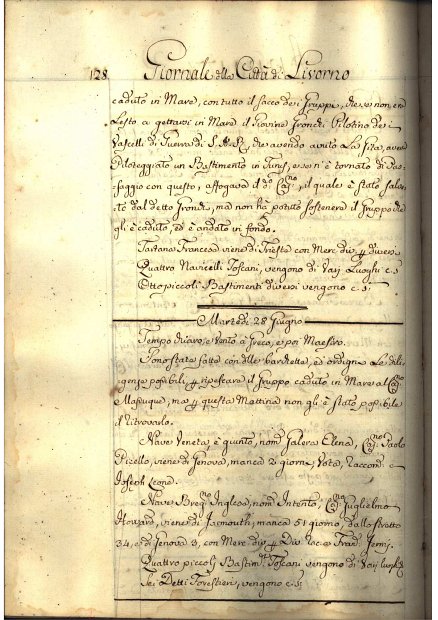 128. Giornale della Città di Livorno
caduto in Mare, con tutto il sacco dei Gruppi, che se non era
lesto a gettarsi in Mare il Giovine Grondi Pilotino de
Vascelli di Guerra di S.A.R., che avendo avuto La Sita, aveva
Piloteggiato un Bastimento in Tunis, e se n'è tornato di Pas-
saggio con questo, affogava il do Capno, il quale è stato salva-
to dal detto Grondi, ma non ha potuto sostenere il Gruppo che
gli è caduto, ed è andato in fondo.
Tartana Francese viene di Trieste con Merc div p diversi
Quattro Navicelli Toscani, vengono di Varj Luoghi c.s
Otto piccoli Bastimenti diversi vengono c.s.
Martedì 28 Giugno
Tempo chiaro, e vento a Greco, e poi Maestro.
Sono state fatte con delle barchette, ed ordigni Le dili-
genze possibili p ripescare il gruppo caduto in Mare al Capno
ma p questa Mattina non gli è stato possibile
il ritrovarlo.
Nave Veneta è giunta, nomta Galera Elena, Capno Paolo
viene di Genova, manca 2 giorni, Vota, Raccom. a
Joseph Leone.
Nave Inglese, nomta Intento, Capno Guglielmo
Howard, viene di manca 51 giorno, dallo stretto
34, e di Genova 3, con Merc div p Div Racco
Quattro piccoli Bastimti Toscani vengono di Varj luoghi
Sei Detti Forestieri, vengono c.s.